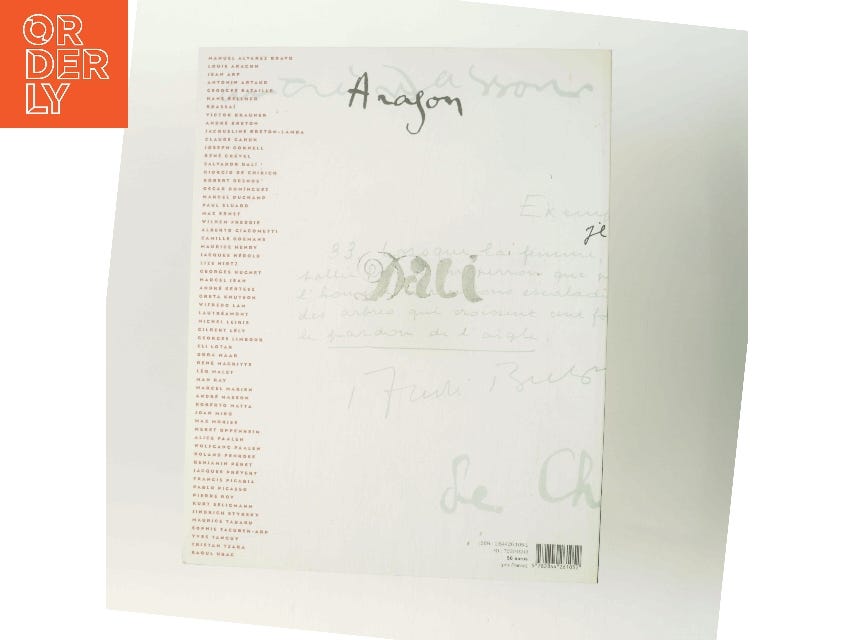 OR
DER
LY
MANUEL ALVAREZ BRAVO
LOUIS ARAGON
JEAN ARP
ANTONIN ARTAUD
GEORGES BATAILLE
HANS BELLMER
BRASSAÏ
VICTOR BRAUNER
ANDRÉ BRETON
JACQUELINE BRETON-LAMBA
CLAUDE CAHUN
JOSEPH CORNELL
RENÉ CREVEL
SALVADOR DALÍ
GIORGIO DE CHIRICO
ROBERT DESNOS
OSCAR DOMÍNGUEZ
MARCEL DUCHAMP
PAUL ELUARD
MAX ERNST
WILHEM FREDDIE
ALBERTO GIACOMETTI
CAMILLE GOEMANS
MAURICE HENRY
JACQUES HÉROLD
LISE HIRTZ
GEORGES HUGNET
MARCEL JEAN
ANDRÉ KERTÉSZ
GRETA KNUTSON
WIFREDO LAM
LAUTRÉAMONT
MICHEL LEIRIS
GILBERT LÉLY
GEORGES LIMBOUR
ELI LOTAR
DORA MAAR
RENÉ MAGRITTE
LÉO MALET
MAN RAY
MARCEL MARIËN
ANDRÉ MASSON
ROBERTO MATTA
JOAN MIRÓ
MAX MORISE
MERET OPPENHEIM
ALICE PAALEN
WOLFGANG PAALEN
ROLAND PENROSE
BENJAMIN PÉRET
JACQUES PRÉVERT
FRANCIS PICABIA
PABLO PICASSO
PIERRE ROY
KURT SELIGMANN
JINDRICH STYRSKY
MAURICE TABARD
SOPHIE TAEUBER-ARP
YVES TANGUY
TRISTAN TZARA
RAOUL UBAC
Masson
Aragon
je
33 Lorsque la femme
Dalí
des arbres qui croissent cent fo
le pardon de l'aigle,
De Ch
ISBN
50 euros